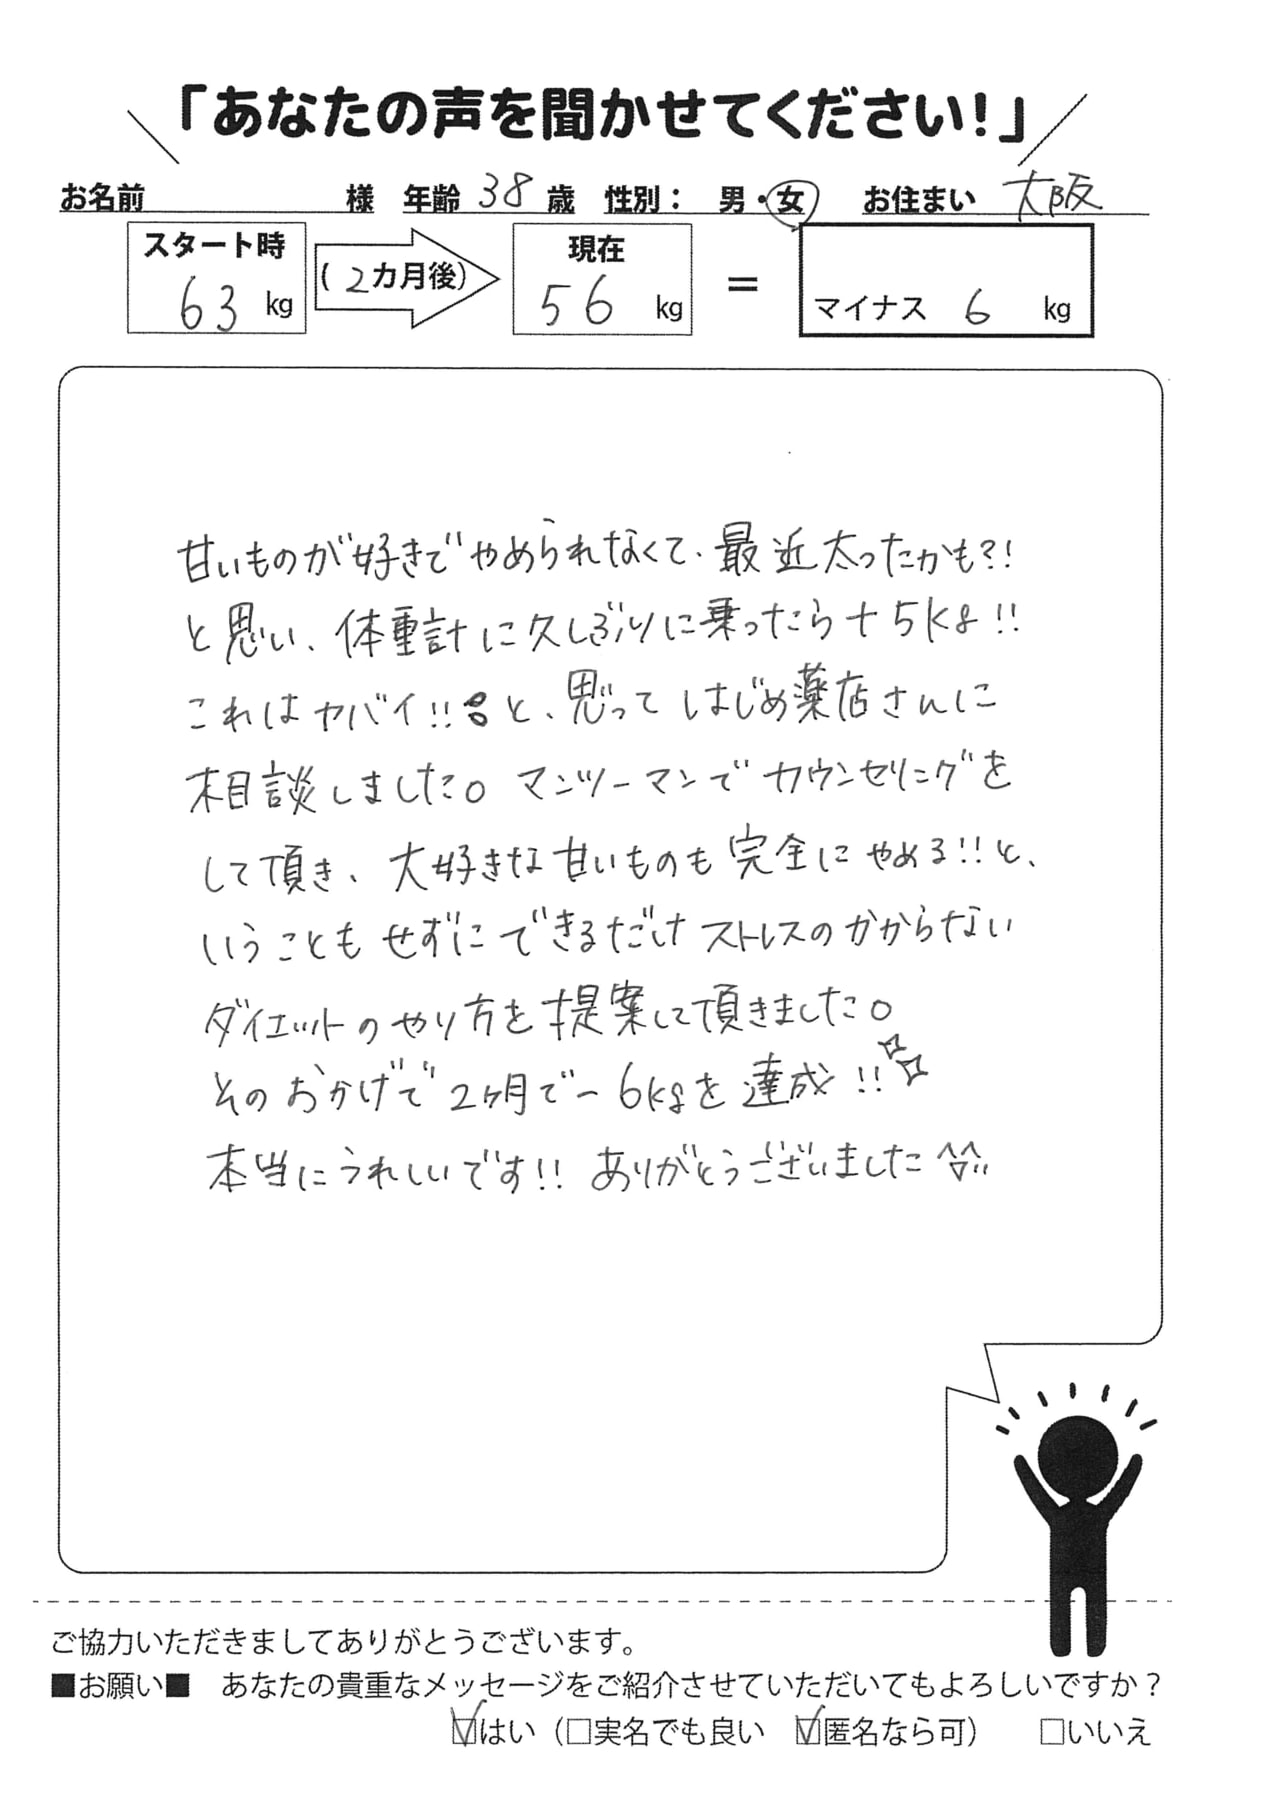 「あなたの声を聞かせてください!」
お名前 様 年齢 38 歳 性別： 男・女 お住まい 大阪
スタート時 63 kg (2カ月後) 現在 56 kg = マイナス 6 kg
甘いものが好きでやめられなくて、最近太ったかも?!
と思い、体重計に久しぶりに乗ったら+5kg!!
これはヤバイ!!と、思ってはじめ薬店さんに
相談しました。マンツーマンでカウンセリングを
して頂き、大好きな甘いものも完全にやめる!!と、
いうこともせずにできるだけストレスのかからない
ダイエットのやり方を提案して頂きました。
そのおかげで2ヶ月で−6kgを達成!!
本当にうれしいです!!ありがとうございました^^
ご協力いただきましてありがとうございます。
■お願い■ あなたの貴重なメッセージをご紹介させていただいてもよろしいですか？
☑はい（□実名でも良い ☑匿名なら可） □いいえ